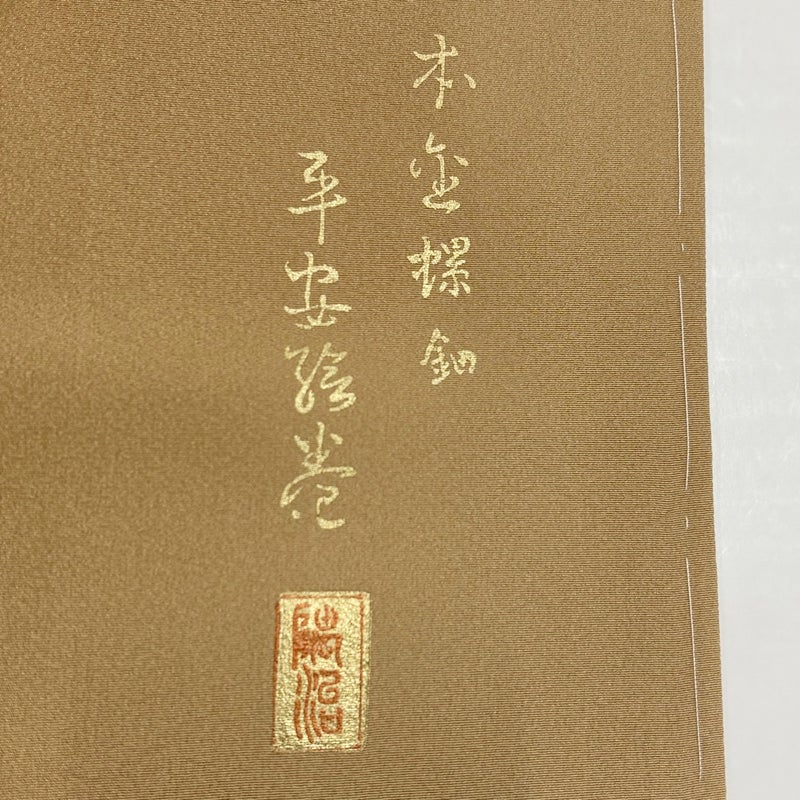 本金螺鈿
平安絵巻